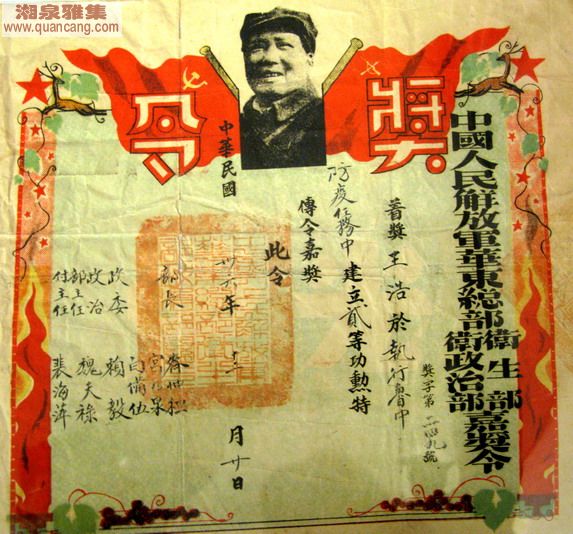 湘泉雅集
www.quancang.com
奬令
中國人民解放軍華東總部衛生部衛政治部嘉奬令
奬字第二四九號
著奬王浩於執行魯中
防疫任務中建立貳等功勲特
傳令嘉奬
此令
中華民國卅六年十二月廿日
部長
齊仲桓
宮乃泉
白備伍
政委 賴毅
政治部主任 魏夫祿
付主任 裴海萍